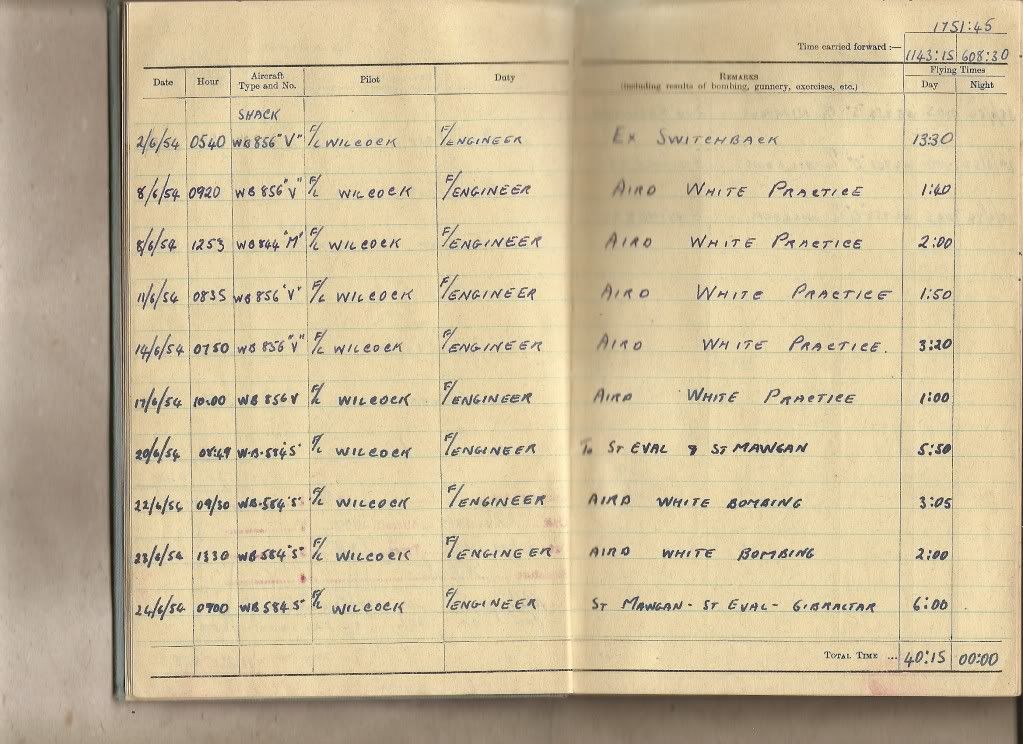 1751:45
Time carried forward :— 1143:15 608:30
Date Hour Aircraft Type and No. Pilot Duty REMARKS (including results of bombing, gunnery, exercises, etc.) Flying Times Day Night
SHACK
2/6/54 0540 WB856 "V" F/L WILCOCK F/ENGINEER EX SWITCHBACK 13:30
8/6/54 0920 WB856 "V" F/L WILCOCK F/ENGINEER AIRD WHITE PRACTICE 1:40
8/6/54 1253 WB844 "M" F/L WILCOCK F/ENGINEER AIRD WHITE PRACTICE 2:00
11/6/54 0835 WB856 "V" F/L WILCOCK F/ENGINEER AIRD WHITE PRACTICE 1:50
14/6/54 0750 WB856 "V" F/L WILCOCK F/ENGINEER AIRD WHITE PRACTICE. 3:20
17/6/54 10:00 WB856 V F/L WILCOCK F/ENGINEER AIRD WHITE PRACTICE 1:00
20/6/54 08:49 W.B.584 "S" F/L WILCOCK F/ENGINEER TO ST EVAL & ST MAWGAN 5:50
22/6/54 09/30 WB.584 "S" F/L WILCOCK F/ENGINEER AIRD WHITE BOMBING 3:05
23/6/54 1330 WB.584 "S" F/L WILCOCK F/ENGINEER AIRD WHITE BOMBING 2:00
24/6/54 0700 WB584 S F/L WILCOCK F/ENGINEER ST MAWGAN - ST EVAL - GIBRALTAR 6:00
TOTAL TIME ... 40:15 00:00